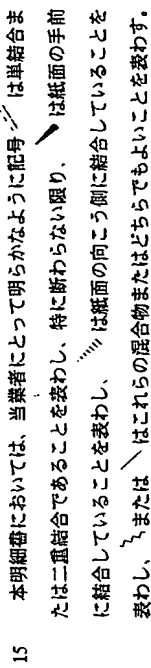 15 本明細書においては、当業者にとって明らかなように記号 は単結合ま
たは二重結合であることを表わし、特に断わらない限り、 は紙面の手前
に結合していることを表わし、 は紙面の向こう側に結合していることを
表わし、 または はこれらの混合物またはどちらでもよいことを表わす。